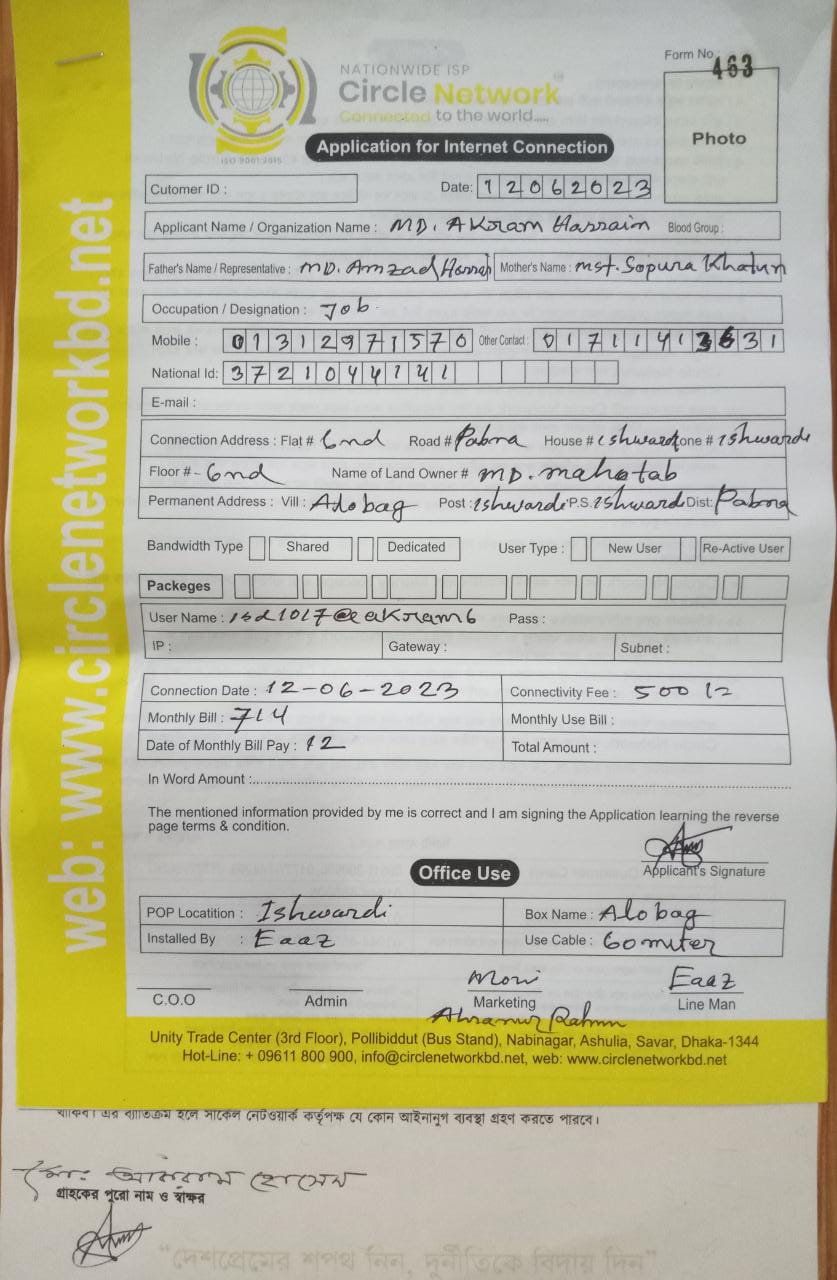 Form No. 463
NATIONWIDE ISP
Circle Network
Connected to the world.....
ISO 9001:2015
Photo
Application for Internet Connection
Cutomer ID :
Date: 12062023
Applicant Name / Organization Name : MD. AKram Hassain Blood Group :
Father's Name / Representative : MD. Amzad Mother's Name : mst. Sopura Khatun
Occupation / Designation : Job
Mobile : 01312971570 Other Contact : 01711413631
National Id: 3721044141
E-mail :
Connection Address : Flat # 6nd Road # Pabna House # ishwardi Zone # ishwardi
Floor # - 6nd Name of Land Owner # MD. mahatab
Permanent Address : Vill : Alobag Post : ishwardi P.S. ishwardi Dist: Pabna
Bandwidth Type Shared Dedicated User Type : New User Re-Active User
Packeges
User Name : Pass :
IP : Gateway : Subnet :
Connection Date : 12-06-2023 Connectivity Fee : 500
Monthly Bill : 714 Monthly Use Bill :
Date of Monthly Bill Pay : 12 Total Amount :
In Word Amount :
The mentioned information provided by me is correct and I am signing the Application learning the reverse
page terms & condition.
Applicant's Signature
Office Use
POP Locatition : Ishwardi Box Name : Alobag
Installed By : Eaaz Use Cable : 60 miter
Moni Eaaz
C.O.O Admin Marketing Line Man
Unity Trade Center (3rd Floor), Pollibiddut (Bus Stand), Nabinagar, Ashulia, Savar, Dhaka-1344
Hot-Line: + 09611 800 900, info@circlenetworkbd.net, web: www.circlenetworkbd.net
web: www.circlenetworkbd.net
থাকিব। এর ব্যতিক্রম হলে সার্কেল নেটওয়ার্ক কর্তৃপক্ষ যে কোন আইনানুগ ব্যবস্থা গ্রহণ করতে পারবে।
মোঃ আকরাম হোসেন
গ্রাহকের পুরো নাম ও স্বাক্ষর
“দেশপ্রেমের শপথ নিন, দুর্নীতিকে বিদায় দিন”